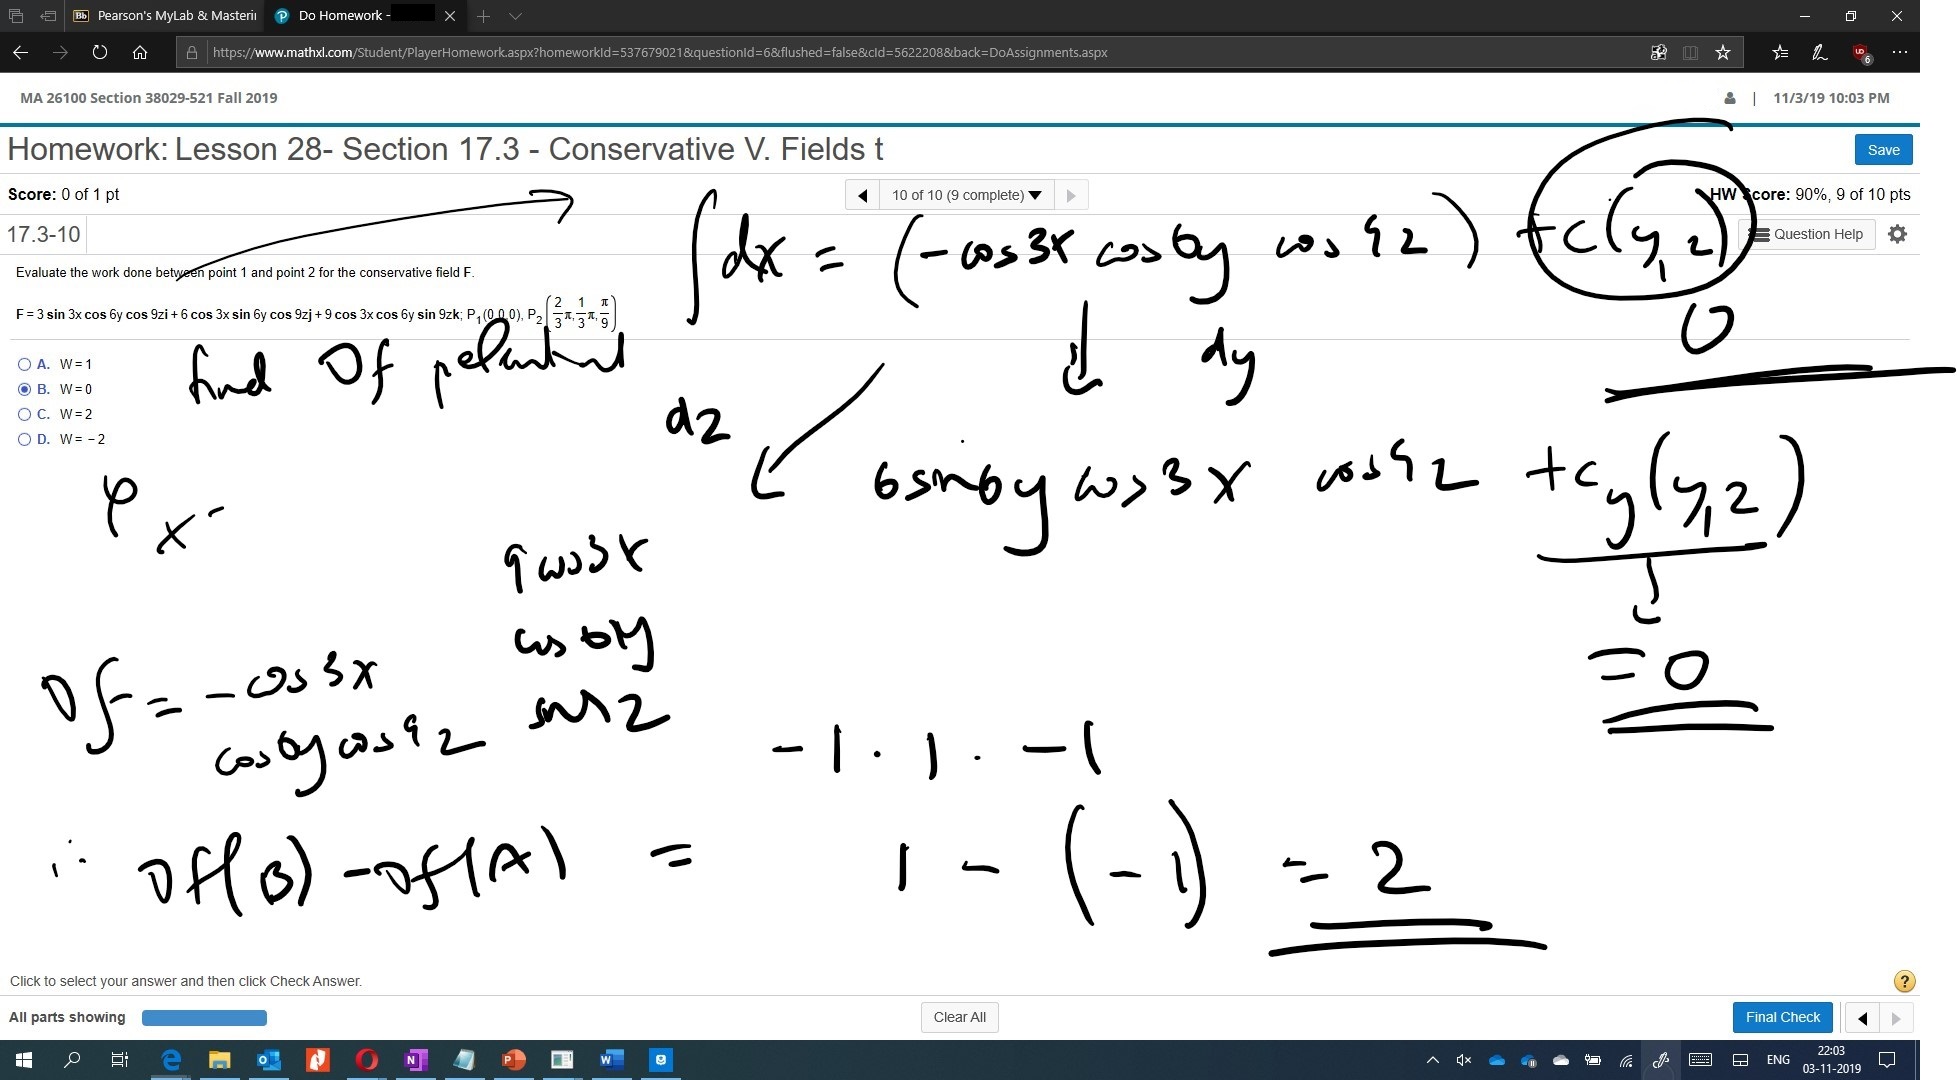 Pearson's MyLab & Masterin
Do Homework -
https://www.mathxl.com/Student/PlayerHomework.aspx?homeworkId=537679021&questionId=6&flushed=false&cId=5622208&back=DoAssignments.aspx
MA 26100 Section 38029-521 Fall 2019
11/3/19 10:03 PM
Homework: Lesson 28- Section 17.3 - Conservative V. Fields t
Save
Score: 0 of 1 pt
10 of 10 (9 complete)
HW Score: 90%, 9 of 10 pts
17.3-10
Question Help
∫dx = (-cos3x cos6y cos 9z) +c(y,z)
0
Evaluate the work done between point 1 and point 2 for the conservative field F.
F = 3 sin 3x cos 6y cos 9zi + 6 cos 3x sin 6y cos 9zj + 9 cos 3x cos 6y sin 9zk; P1(0,0,0), P2(2/3 π, 1/3 π, π/9)
find ∇f potential
A. W = 1
B. W = 0
C. W = 2
D. W = - 2
dy
dz
6sin6y cos3x cos9z +cy(y,z)
= 0
φx -
9cos3x
cos6y
sin9z
∇f = -cos3x
cos6ycos9z
-1 · 1 · -1
∴ ∇f(B) -∇f(A) = 1 - (-1) = 2
Click to select your answer and then click Check Answer.
?
All parts showing
Clear All
Final Check
ENG
22:03
03-11-2019